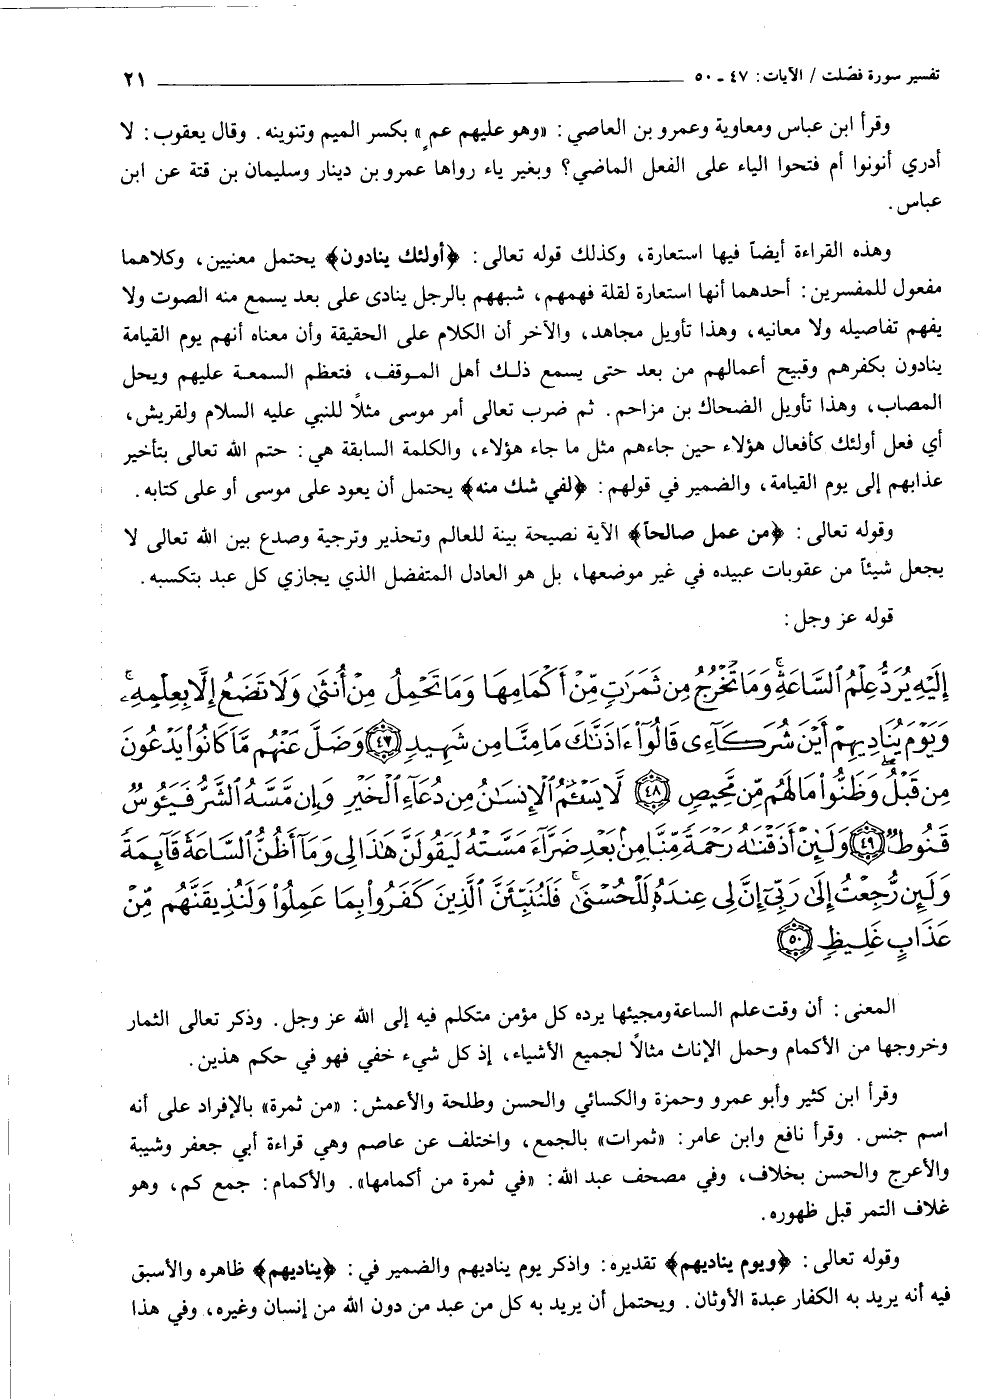 تفسير سورة فصّلت / الآيات: ٤٧ ـ ٥٠ ٢١
وقرأ ابن عباس ومعاوية وعمرو بن العاصي: «وهو عليهم عمٍ» بكسر الميم وتنوينه. وقال يعقوب: لا
أدري أنونوا أم فتحوا الياء على الفعل الماضي؟ وبغير ياء رواها عمرو بن دينار وسليمان بن قتة عن ابن
عباس.
وهذه القراءة أيضاً فيها استعارة، وكذلك قوله تعالى: ﴿أولئك ينادون﴾ يحتمل معنيين، وكلاهما
مفعول للمفسرين: أحدهما أنها استعارة لقلة فهمهم، شبههم بالرجل ينادى على بعد يسمع منه الصوت ولا
يفهم تفاصيله ولا معانيه، وهذا تأويل مجاهد، والآخر أن الكلام على الحقيقة وأن معناه أنهم يوم القيامة
ينادون بكفرهم وقبيح أعمالهم من بعد حتى يسمع ذلك أهل الموقف، فتعظم السمعة عليهم ويحل
المصاب، وهذا تأويل الضحاك بن مزاحم. ثم ضرب تعالى أمر موسى مثلاً للنبي عليه السلام ولقريش،
أي فعل أولئك كأفعال هؤلاء حين جاءهم مثل ما جاء هؤلاء، والكلمة السابقة هي: حتم الله تعالى بتأخير
عذابهم إلى يوم القيامة، والضمير في قولهم: ﴿لفي شك منه﴾ يحتمل أن يعود على موسى أو على كتابه.
وقوله تعالى: ﴿من عمل صالحاً﴾ الآية نصيحة بينة للعالم وتحذير وترجية وصدع بين الله تعالى لا
يجعل شيئاً من عقوبات عبيده في غير موضعها، بل هو العادل المتفضل الذي يجازي كل عبد بتكسبه.
قوله عز وجل:
إِلَيْهِ يُرَدُّ عِلْمُ ٱلسَّاعَةِ ۚ وَمَا تَخْرُجُ مِن ثَمَرَٰتٍ مِّنْ أَكْمَامِهَا وَمَا تَحْمِلُ مِنْ أُنثَىٰ وَلَا تَضَعُ إِلَّا بِعِلْمِهِۦ ۚ
وَيَوْمَ يُنَادِيهِمْ أَيْنَ شُرَكَآءِى قَالُوٓا۟ ءَاذَنَّٰكَ مَا مِنَّا مِن شَهِيدٍ ﴿٤٧﴾ وَضَلَّ عَنْهُم مَّا كَانُوا۟ يَدْعُونَ
مِن قَبْلُ ۖ وَظَنُّوا۟ مَا لَهُم مِّن مَّحِيصٍ ﴿٤٨﴾ لَّا يَسْـَٔمُ ٱلْإِنسَٰنُ مِن دُعَآءِ ٱلْخَيْرِ وَإِن مَّسَّهُ ٱلشَّرُّ فَيَـُٔوسٌ
قَنُوطٌ ﴿٤٩﴾ وَلَئِنْ أَذَقْنَٰهُ رَحْمَةً مِّنَّا مِنۢ بَعْدِ ضَرَّآءَ مَسَّتْهُ لَيَقُولَنَّ هَٰذَا لِى وَمَآ أَظُنُّ ٱلسَّاعَةَ قَآئِمَةً
وَلَئِن رُّجِعْتُ إِلَىٰ رَبِّىٓ إِنَّ لِى عِندَهُۥ لَلْحُسْنَىٰ ۚ فَلَنُنَبِّئَنَّ ٱلَّذِينَ كَفَرُوا۟ بِمَا عَمِلُوا۟ وَلَنُذِيقَنَّهُم مِّنْ
عَذَابٍ غَلِيظٍ ﴿٥٠﴾
المعنى: أن وقت علم الساعة ومجيئها يرده كل مؤمن متكلم فيه إلى الله عز وجل. وذكر تعالى الثمار
وخروجها من الأكمام وحمل الإناث مثالاً لجميع الأشياء، إذ كل شيء خفي فهو في حكم هذين.
وقرأ ابن كثير وأبو عمرو وحمزة والكسائي والحسن وطلحة والأعمش: «من ثمرة» بالإفراد على أنه
اسم جنس. وقرأ نافع وابن عامر: «ثمرات» بالجمع، واختلف عن عاصم وهي قراءة أبي جعفر وشيبة
والأعرج والحسن بخلاف، وفي مصحف عبد الله: «في ثمرة من أكمامها». والأكمام: جمع كم، وهو
غلاف التمر قبل ظهوره.
وقوله تعالى: ﴿ويوم يناديهم﴾ تقديره: واذكر يوم يناديهم والضمير في: ﴿يناديهم﴾ ظاهره والأسبق
فيه أنه يريد به الكفار عبدة الأوثان. ويحتمل أن يريد به كل من عبد من دون الله من إنسان وغيره، وفي هذا